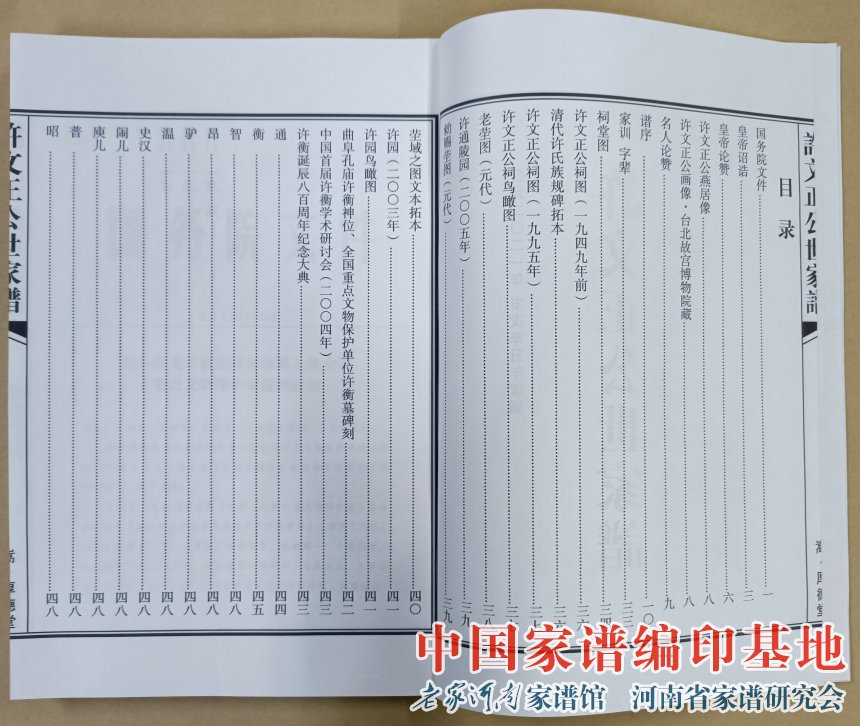 許文正公世家譜
嵩·厚德堂
目录
国务院文件……一
皇帝诏诰……三
皇帝论赞……六
许文正公燕居像……八
许文正公画像·台北故宫博物院藏……八
名人论赞……九
谱序……一〇
家训 字辈……三三
祠堂图……三四
许文正公祠图（一九四九年前）……三六
清代许氏族规碑拓本……三六
许文正公祠图（一九九五年）……三
许文正公祠鸟瞰图……三
老茔图（元代）……三八
许通陵园（二〇〇五年）……三九
勅赐茔图（元代）……三九
茔域之图文本拓本……四〇
许园（二〇〇三年）……四一
许园鸟瞰图……四一
曲阜孔庙许衡神位、全国重点文物保护单位许衡墓碑刻……四二
中国首届许衡学术研讨会（二〇〇四年）……四三
许衡诞辰八百周年纪念大典……四三
通……四四
衡……四五
智……四八
昂……四八
驴……四八
温……四八
史汉……四八
闹儿……四八
庾儿……四八
普……四八
昭……四八
許文正公世家譜
嵩·厚德堂
中国家谱编印基地
老家河南家谱馆 河南省家谱研究会